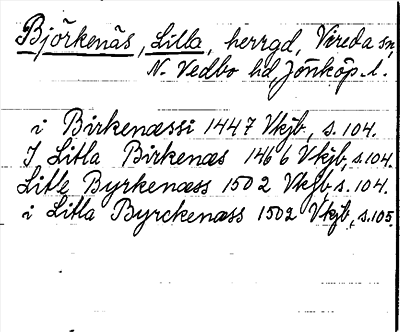 Björkenäs, Lilla, herrgd, Vireda sn,
N. Vedbo hd, Jönköp. l.
i Birkenæssi 1447 Vkjb, s. 104.
J Litla Birkenæs 1466 Vkjb, s. 104.
Litle Byrkenæss 1502 Vkjb, s. 104.
i Litla Byrckenæss 1502 Vkjb, s. 105.